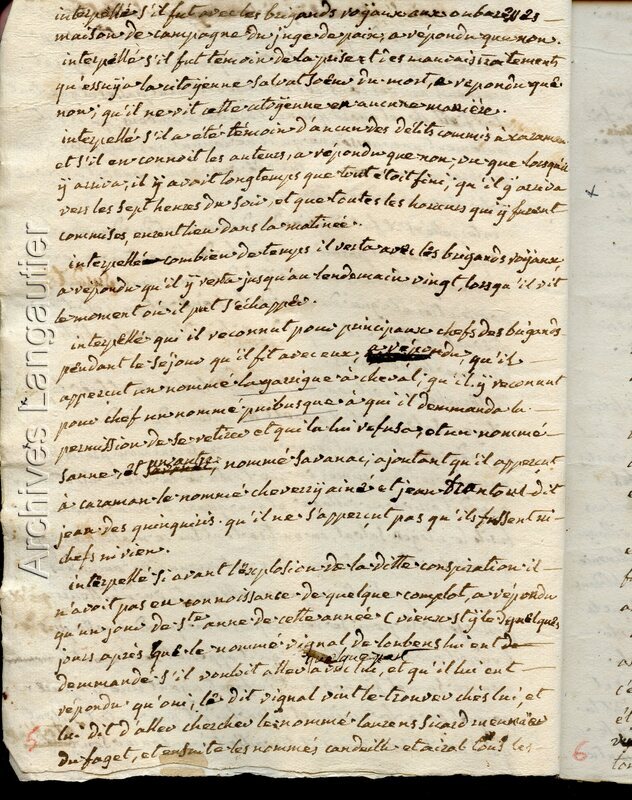 interpellé s'il fut avec les brigands royaux aux
maison de campagne du juge de paix, a répondu que non.
interpellé s'il fut temoin de la prise et des mauvais traitements
qu'essuya la citoyenne Salvat Soeur du mort, a répondu que
non; qu'il ne vit cette citoyenne en aucune manière.
interpellé s'il a été témoin d'aucun des délits commis à Caraman
et s'il en connoit les auteurs, a répondu que non, vu que lorsqu'il
y arriva, il y avait longtemps que tout étoit fini, qu'il y arriva
vers les sept heures du soir, et que toutes les horreurs qui y furent
commises, eurent lieu dans la matinée.
interpellé combien de temps il resta avec les brigands royaux,
a répondu qu'il y resta jusqu'au lendemain vingt, lorsqu'il vit
le moment où il put s'échapper.
interpellé qui il reconnut pour principaux chefs des brigands
pendant le séjour qu'il fit avec eux, a répondu, qu'il
apperçut un nommé Lagarrigue à cheval; qu'il y reconnut
pour chef un nommé puibusque à qui il demmanda la
permission de se retirer et qui la lui refusa, et un nommé
Sanne, et un autre nommé Savanac; ajoutant qu'il apperçut
à caraman le nommé cheverry ainé et jean dit
jean des quinquiris. qu'il ne s'apperçut pas qu'ils fussent ni
chefs ni rien.
interpellé si avant l'explosion de la ditte conspiration il
n'avoit pas eu connoissance de quelque complot, a répondu
qu'un jour de Ste anne de cette année (vieux style) quelques
jours après que le nommé vignal de loubens lui eut de
demmandé s'il vouloit aller avec lui, quelque part et qu'il lui eut
répondu qu'oui; le dit vignal vint le trouver chès lui et
lui dit d'aller chercher le nommé laurens Sicard meunier
du faget, et ensuite les nommés et airal tous les
5
6
Archives Langautier